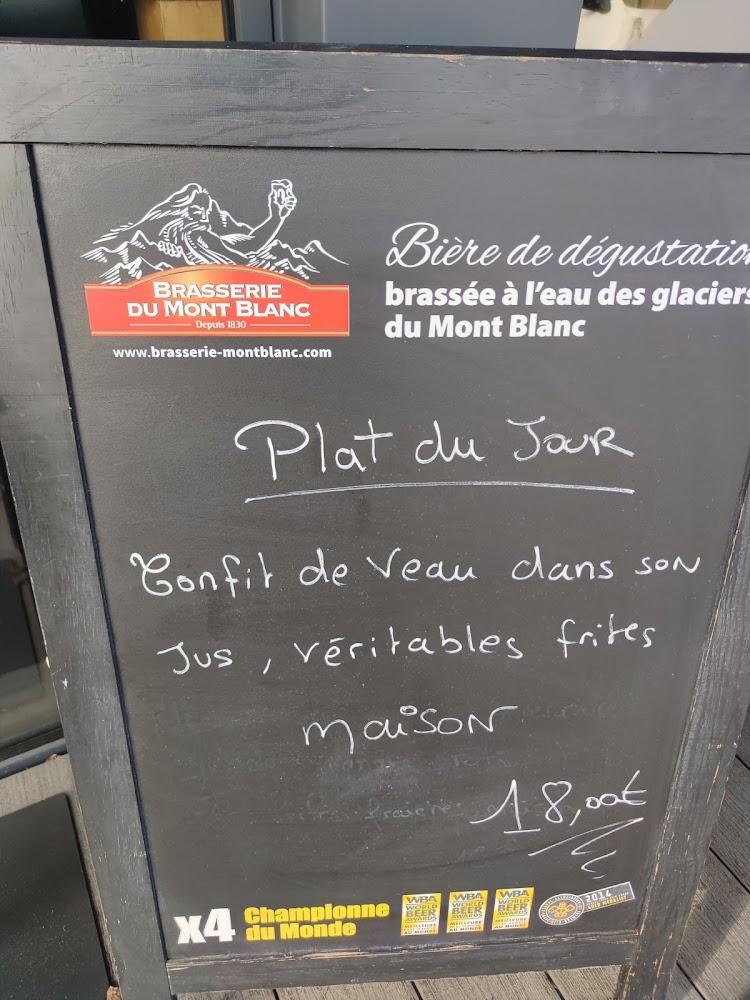 BRASSERIE
DU MONT BLANC
Depuis 1830
www.brasserie-montblanc.com
Bière de dégustation
brassée à l'eau des glaciers
du Mont Blanc
Plat du Jour
Confit de Veau dans son
Jus, véritables frites
maison
18,00€
x4 Championne
du Monde
WBA
WORLD
BEER
AWARDS
WBA
WORLD
BEER
AWARDS
WBA
WORLD
BEER
AWARDS
2014